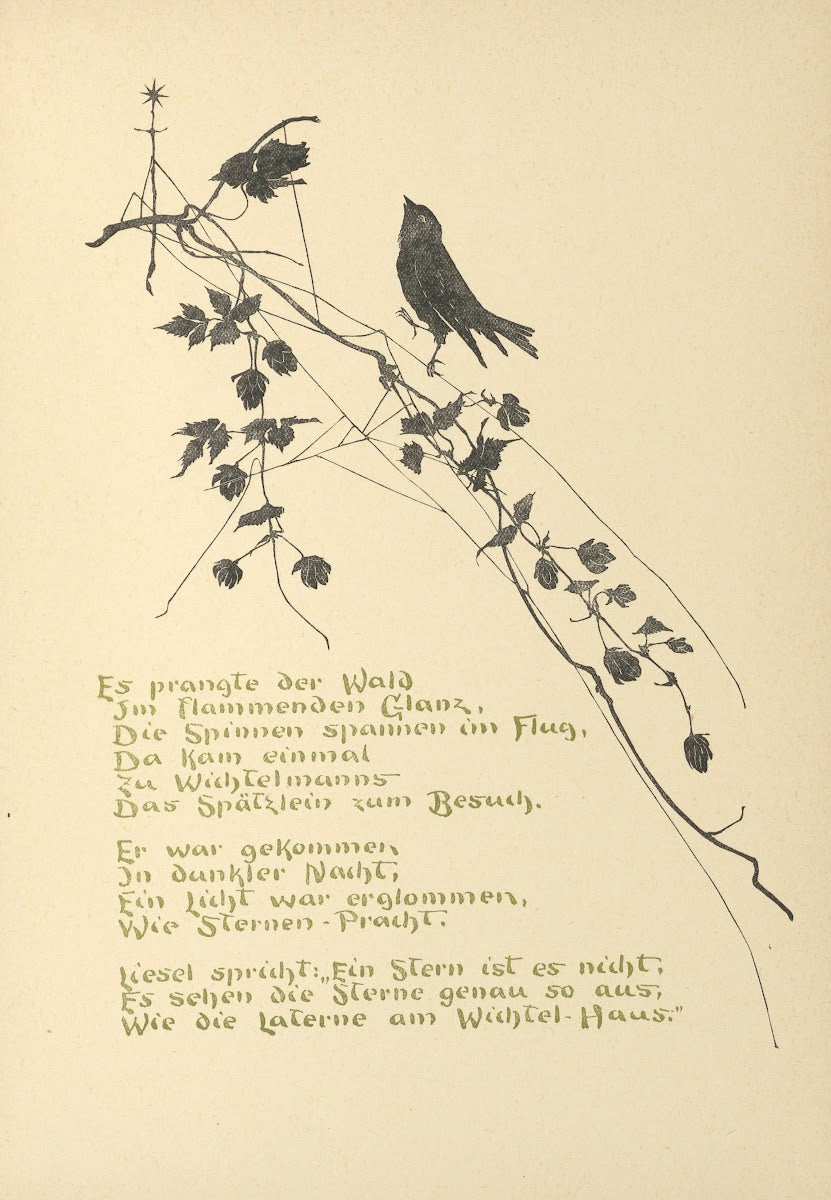 Es prangte der Wald
Im flammenden Glanz,
Die Spinnen spannen im Flug,
Da kam einmal
Zu Wichtelmanns
Das Spätzlein zum Besuch.
Er war gekommen
In dunkler Nacht,
Ein Licht war erglommen,
Wie Sternen-Pracht.
Liesel spricht: „Ein Stern ist es nicht,
Es sehen die Sterne genau so aus,
Wie die Laterne am Wichtel-Haus."